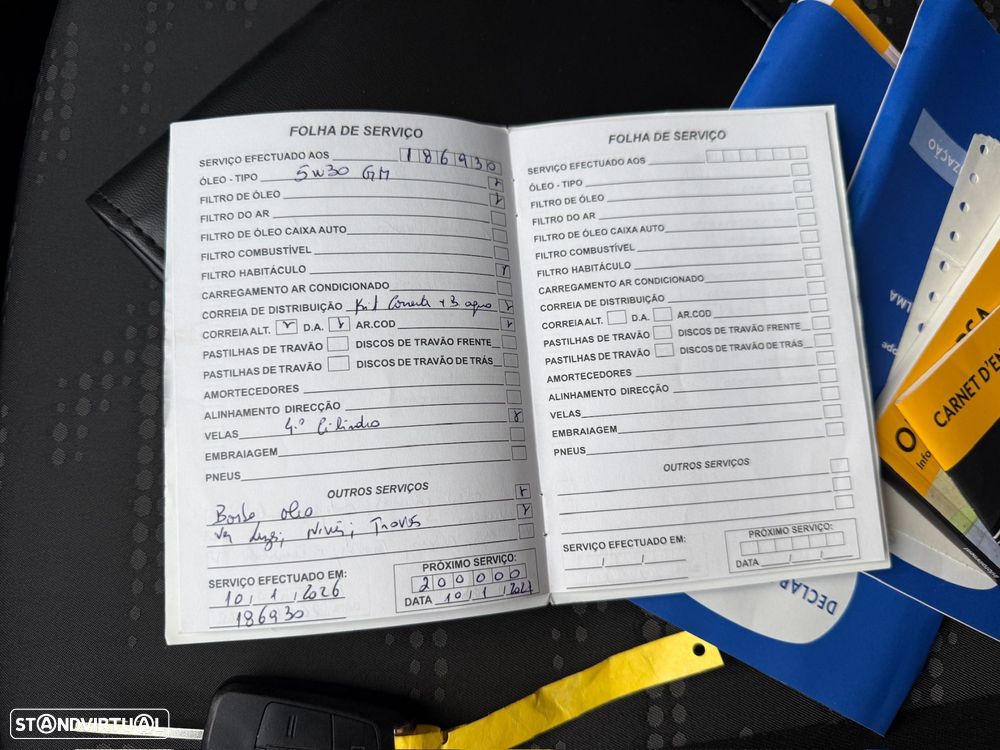 FOLHA DE SERVIÇO
SERVIÇO EFECTUADO AOS 186930
ÓLEO - TIPO 5W30 GM
FILTRO DE ÓLEO
FILTRO DO AR
FILTRO DE ÓLEO CAIXA AUTO
FILTRO COMBUSTÍVEL
FILTRO HABITÁCULO
CARREGAMENTO AR CONDICIONADO
CORREIA DE DISTRIBUIÇÃO Kit Correia + B. agua
CORREIA ALT. D.A. AR.COD
PASTILHAS DE TRAVÃO DISCOS DE TRAVÃO FRENTE
PASTILHAS DE TRAVÃO DISCOS DE TRAVÃO DE TRÁS
AMORTECEDORES
ALINHAMENTO DIRECÇÃO
VELAS 4.º Cilindro
EMBRAIAGEM
PNEUS
OUTROS SERVIÇOS
oleo
Luzes, Niveis, Travões
SERVIÇO EFECTUADO EM:
10/1/2026
186930
PRÓXIMO SERVIÇO:
200000
DATA 10/1/2027
FOLHA DE SERVIÇO
SERVIÇO EFECTUADO AOS
ÓLEO - TIPO
FILTRO DE ÓLEO
FILTRO DO AR
FILTRO DE ÓLEO CAIXA AUTO
FILTRO COMBUSTÍVEL
FILTRO HABITÁCULO
CARREGAMENTO AR CONDICIONADO
CORREIA DE DISTRIBUIÇÃO
CORREIA ALT. D.A. AR.COD
PASTILHAS DE TRAVÃO DISCOS DE TRAVÃO FRENTE
PASTILHAS DE TRAVÃO DISCOS DE TRAVÃO DE TRÁS
AMORTECEDORES
ALINHAMENTO DIRECÇÃO
VELAS
EMBRAIAGEM
PNEUS
OUTROS SERVIÇOS
SERVIÇO EFECTUADO EM:
/ /
PRÓXIMO SERVIÇO:
DATA / /
CARNET D'EN
Info
DECLAR
STANDVIRTUAL